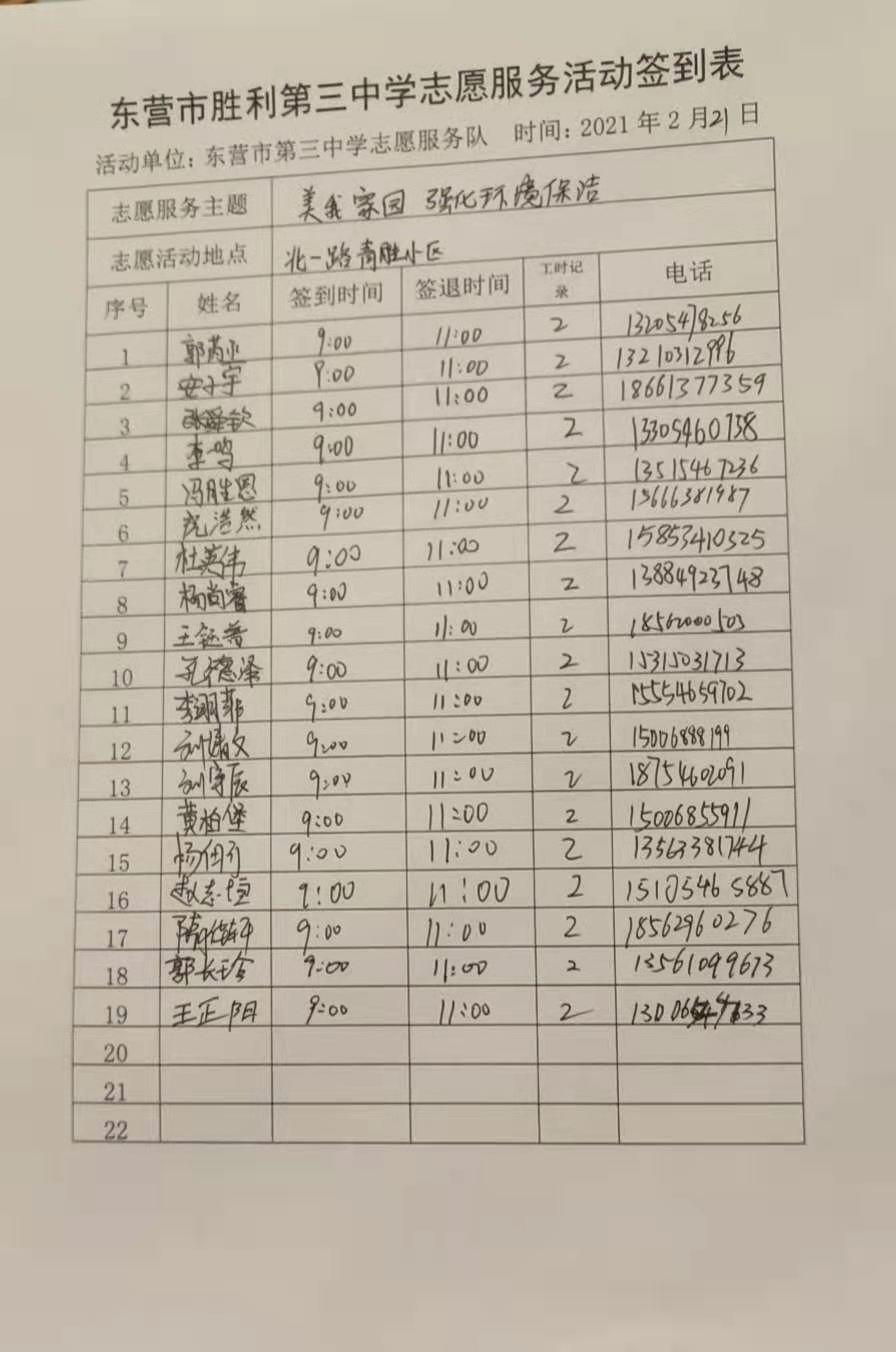 东营市胜利第三中学志愿服务活动签到表
活动单位：东营市第三中学志愿服务队 时间：2021 年 2 月 21 日
志愿服务主题 美我家园 强化环境保洁
志愿活动地点 北一路青胜小区
序号 姓名 签到时间 签退时间 工时记录 电话
1 9:00 11:00 2 13205478256
2 安子宇 9:00 11:00 2 13210312996
3 9:00 11:00 2 18661377359
4 李鸣 9:00 11:00 2 13305460758
5 冯胜恩 9:00 11:00 2 13515467236
6 庞浩然 9:00 11:00 2 15666381987
7 杜英伟 9:00 11:00 2 15853410325
8 杨尚睿 9:00 11:00 2 13884923748
9 9:00 11:00 2 18562000503
10 孔德泽 9:00 11:00 2 15315031713
11 李翊菲 9:00 11:00 2 15554659702
12 9:00 11:00 2 15006888199
13 刘宇辰 9:00 11:00 2 18754602091
14 黄柏堡 9:00 11:00 2 15006855911
15 9:00 11:00 2 13563381744
16 赵志恒 9:00 11:00 2 15105465887
17 9:00 11:00 2 18562960276
18 郭长玲 9:00 11:00 2 13561099673
19 王正阳 9:00 11:00 2
20
21
22